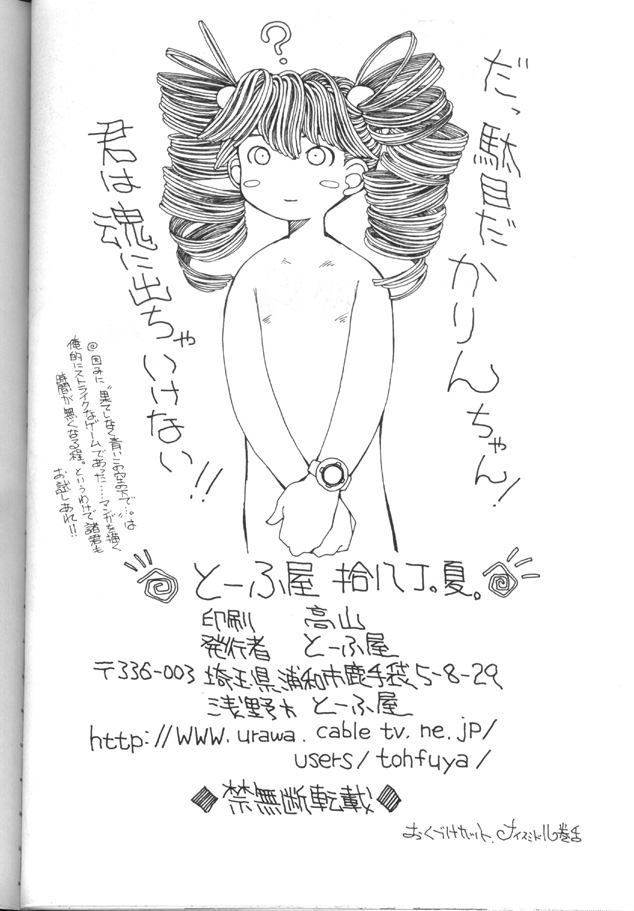 ?
だっ駄目だかりんちゃん!
君は魂に出ちゃいけない!!
@因みに“果てしなく青いこの空の下で…。”は
俺的にストライクなゲームであった……マンガを描く
時間が無くなる程。というわけで諸君も
お試しあれ!!
とーふ屋 拾八丁。夏。
印刷 高山
発行者 とーふ屋
〒336-003 埼玉県浦和市鹿手袋5-8-29
浅野方 とーふ屋
http://www.urawa.cable tv.ne.jp/
users/tohfuya/
◆禁無断転載◆
おくづけカット、ナイスミドル